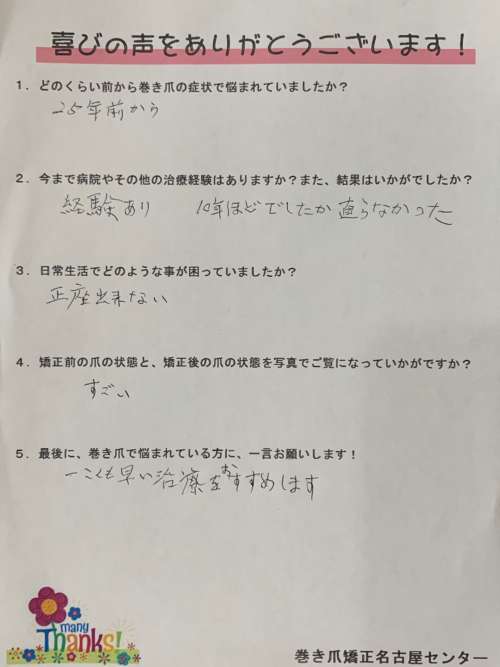 喜びの声をありがとうございます！
１．どのくらい前から巻き爪の症状で悩まれていましたか？
25年前から
２．今まで病院やその他の治療経験はありますか？また、結果はいかがでしたか？
経験あり　10年ほどでしたか 直らなかった
３．日常生活でどのような事が困っていましたか？
正座出来ない
４．矯正前の爪の状態と、矯正後の爪の状態を写真でご覧になっていかがですか？
すごい
５．最後に、巻き爪で悩まれている方に、一言お願いします！
早い治療をおすすめします
many
Thanks!
巻き爪矯正名古屋センター